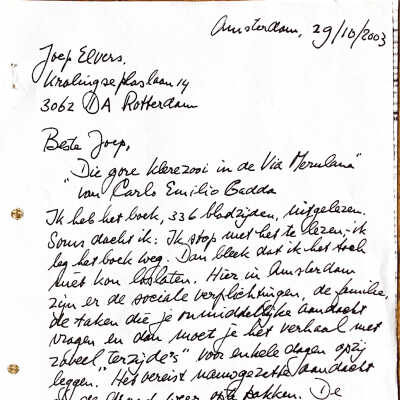 Amsterdam, 29/10/2003
Joep Elvers.
Kralingseplaslaan 14
3062 DA Rotterdam
Beste Joep,
"Die gore klerezooi in de Via Merulana"
van Carlo Emilio Gadda
Ik heb het boek, 336 bladzijden, uitgelezen.
Soms dacht ik: Ik stop met het te lezen – ik
leg het boek weg. Dan bleek dat ik het toch
niet kon loslaten. Hier in Amsterdam
zijn er de sociale verplichtingen, de familie,
de taken die je onmiddellijke aandacht
vragen en dan moet je het verhaal met
zoveel "terzijde's" voor enkele dagen opzij
leggen." Het vereist nauwgezette aandacht
om de draad weer op te pakken. De